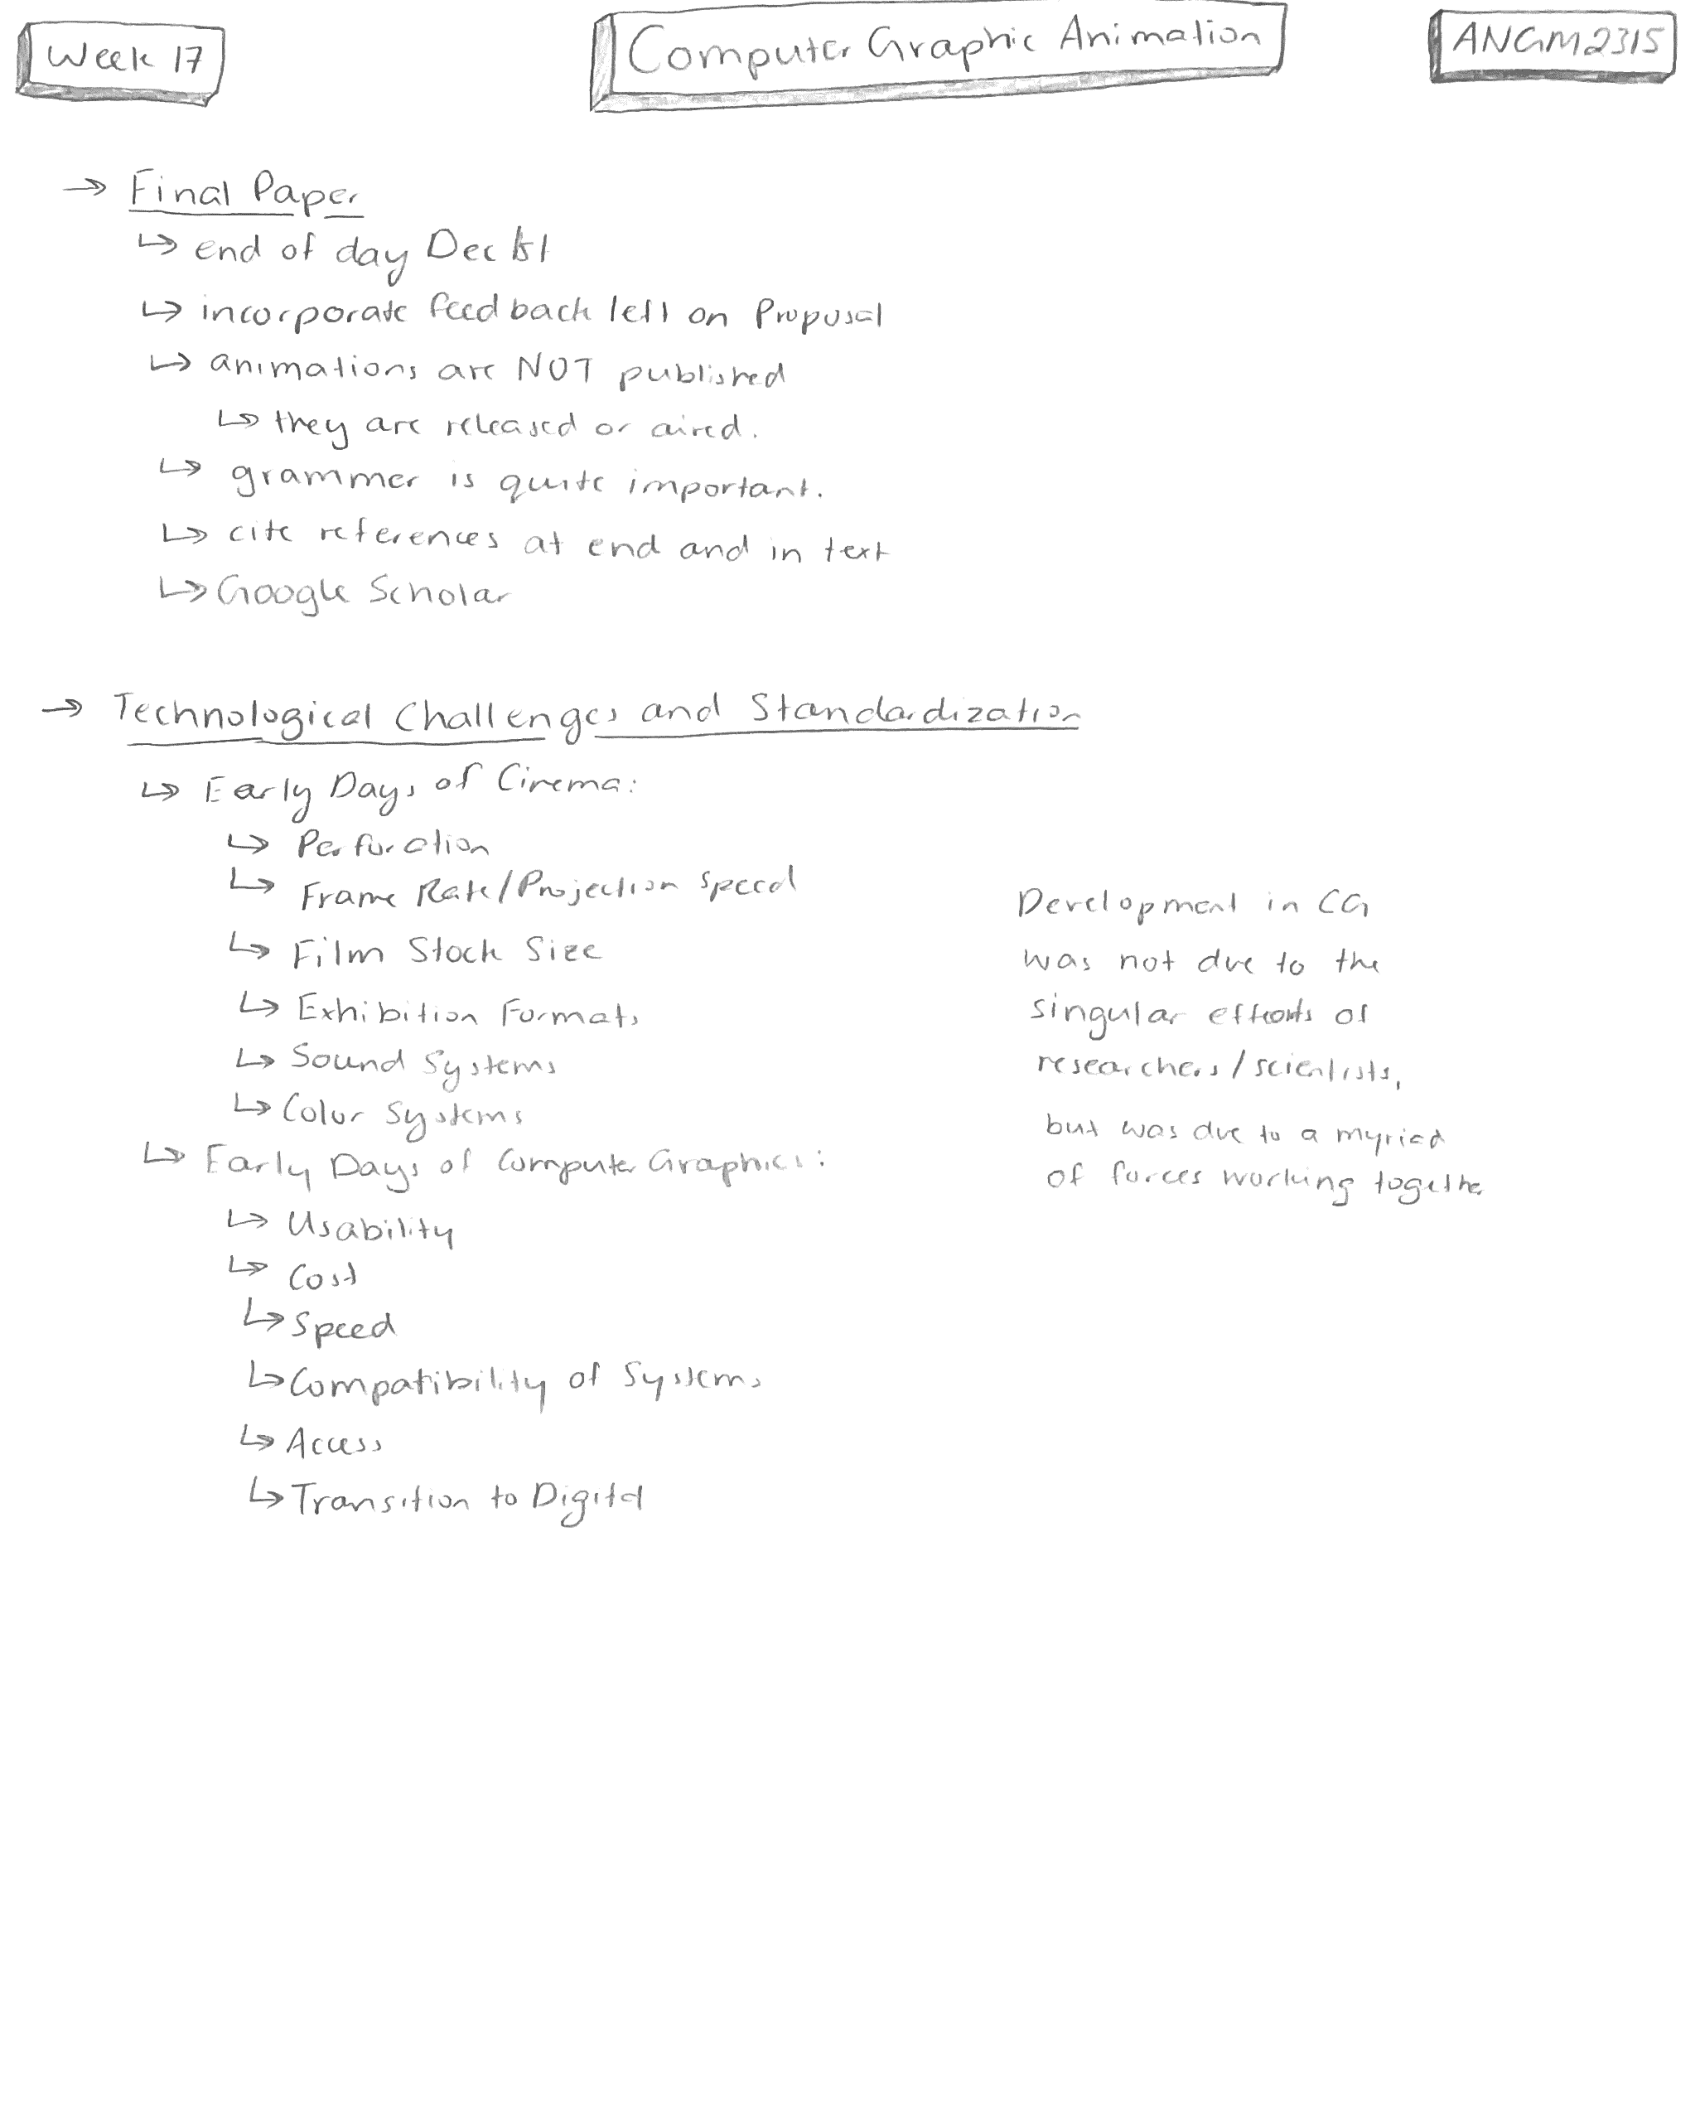 Week 17
Computer Graphic Animation
ANGM2315
→ Final Paper
↳ end of day Dec 1st
↳ incorporate feedback left on Proposal
↳ animations are NOT published
↳ they are released or aired.
↳ grammer is quite important.
↳ cite references at end and in text
↳ Google Scholar
→ Technological Challenges and Standardization
↳ Early Days of Cinema:
↳ Perforation
↳ Frame Rate/Projection speed
↳ Film Stock Size
↳ Exhibition Formats
↳ Sound Systems
↳ Color Systems
↳ Early Days of Computer Graphics:
↳ Usability
↳ Cost
↳ Speed
↳ Compatibility of Systems
↳ Access
↳ Transition to Digital
Development in CG
was not due to the
singular efforts of
researchers/scientists,
but was due to a myriad
of forces working together